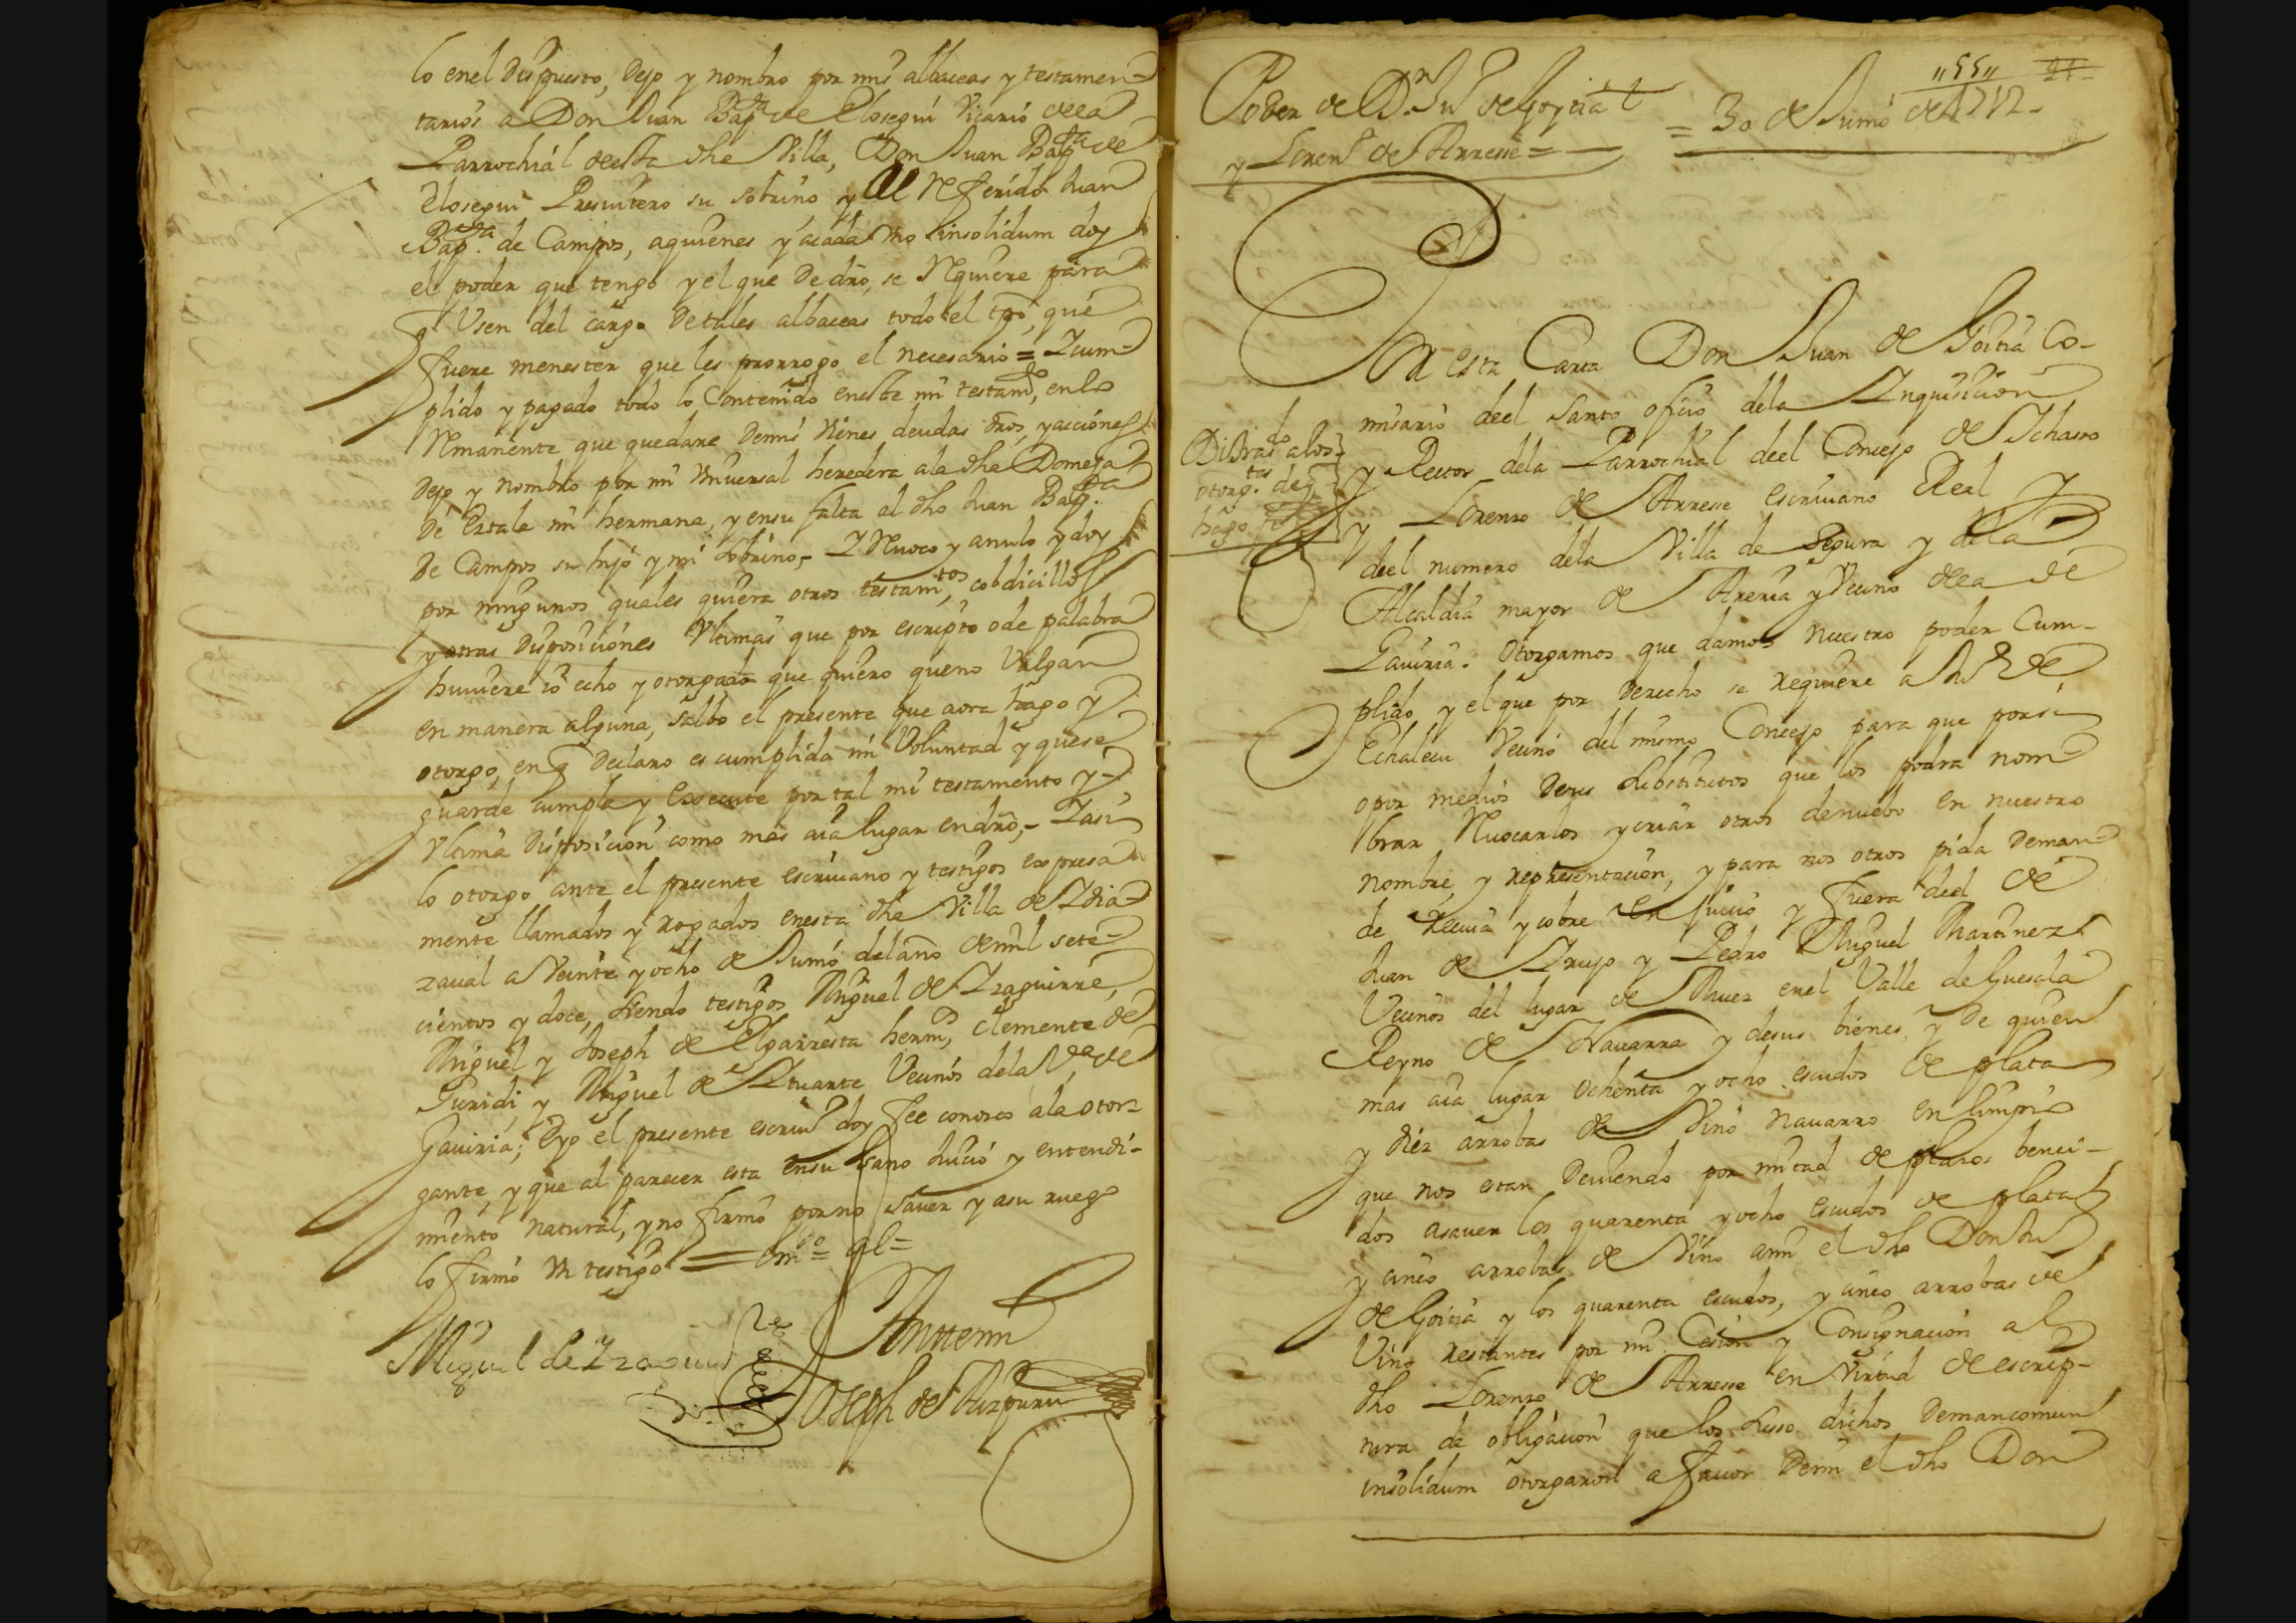 lo enel dispuesto, dejo y nombro por mis albaceas y testamen-
tarios a Don Juan Bapta de Elosegui Vicario dela
Parrochial desta dha Villa, Don Juan Bapta de
Elosegui Presuitero su sobrino y al referido Juan
Bapta de Campos, aquienes y acada vno insolidum doy
el poder que tengo y el que de dro, se requiere para
q Vsen del cargo de tales albaceas todo el tpo, que
fuere menester que les prorrogo el necesario = Y cum-
plido y pagado todo lo Contenido eneste mi testamto, enlo
Remanente que quedare demis vienes deudas dros, yacciones
dejo y nombro por mi vniuersal heredera ala dha Domeja
de Ertala mi hermana, y ensu falta al dho Juan Bapta
de Campos su hijo y mi sobrino, Y Reuoco y anulo y doy
por ningunos quales quiera otros testamtos, cobdicillos
y otras disposiciones vltimas que por escripto o de palabra
huuiere io echo y otorgado que quiero queno Valgan
en manera alguna, salbo el presente que aora hago y
otorgo, en q declaro es cumplida mi Voluntad y quese
guarde cumpla y, exsecute por tal mi testamento y
vltima disposicion como mas aia lugar en dro, - Y asi
lo otorgo ante el presente escriuano y testigos expresa
mente llamados y rogados enesta dha Villa de Ydia-
zaual a Veinte y ocho de Junio del año de mil sete-
cientos y doce, siendo testigos Miguel de Yzaguirre,
Miguel y Joseph de Elgarresta hermos, Clemente de
Guridi, y Miguel de Yruarte Vecinos dela Va de
Gauiria; E yo el presente escriuo doy fee conozco ala otor-
gante, y que al parecer esta ensu sano Juicio y entendi-
miento natural, y no firmó por no sauer y asu ruego
lo firmó vn testigo = emdo = al =
Miguel de Yzaguirre
Antemi
Joseph de Aizpuru
Poder de Dn Juo de Goyzia
y Lorenzo de Arrese =
= 30 de Junio de 1712 -
"55"
Por esta Carta Don Juan de Goitia Co-
misario deel Santo oficio dela Inquisicion
y Rector dela Parrochial deel Concejo de Ichaso
y Lorenzo de Arrese escriuano Real y
deel numero dela Villa de Segura y dela
Alcaldia mayor de Areria y Vecino dela de
Gauiria. Otorgamos que damos nuestro poder Cum-
plido y el que por derecho se requiere a Juo de
Echalecu Vecino del mismo Concejo para que porsi,
o por medios desus substitutos que los podra nom
brar Reuocarlos y criar otros denuebo en nuestro
nombre, y representacion, y para nos otros pida deman-
de reciua y cobre en juicio y fuera deel de
Juan de Yrujo y Pedro Miguel Martinez
Vecinos del lugar de Muez enel Valle de Guesala
Reyno de Nauarra y desus bienes, y de quien
mas aia lugar Ochenta y ocho escudos de plata
y diez arrobas de Vino nauarro en limpio
que nos estan deuiendo por mitad de plazos benci-
dos asauer los quarenta y ocho escudos de plata
y cinco arrobas de Vino ami el dho Don Juo
de Goitia y los quarenta escudos, y cinco arrobas de
Vino restantes por mi Cesion y Consignacion al
dho Lorenzo de Arrese en Virtud de escrip-
tura de obligacion que los suso dichos demancomun
insolidum otorgaron a fauor demi el dho Don